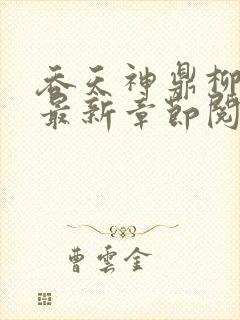 吞天神鼎柳
最新章节阅
曹雲金